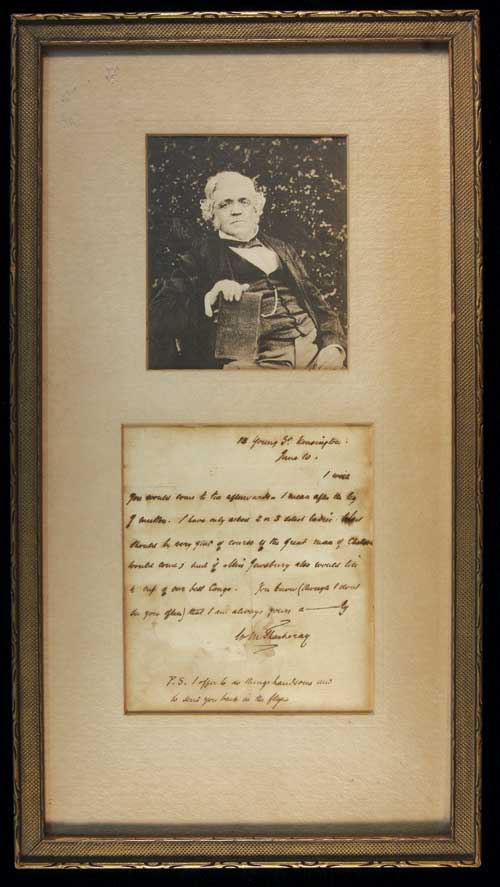 13 Young St. Kensington.
June 10.
I wish
you would come to tea afterwards I mean after the leg
of mutton. I have only asked 2 or 3 select ladies
should be very glad of course if the great man of Chelsea
would come, and if Miss Jewsbury also would like
a cup of our best Congo. You know (though I don't
see you often) that I am always yours
W M Thackeray
P.S. I offer to do things handsome and
to send you back in the flys.